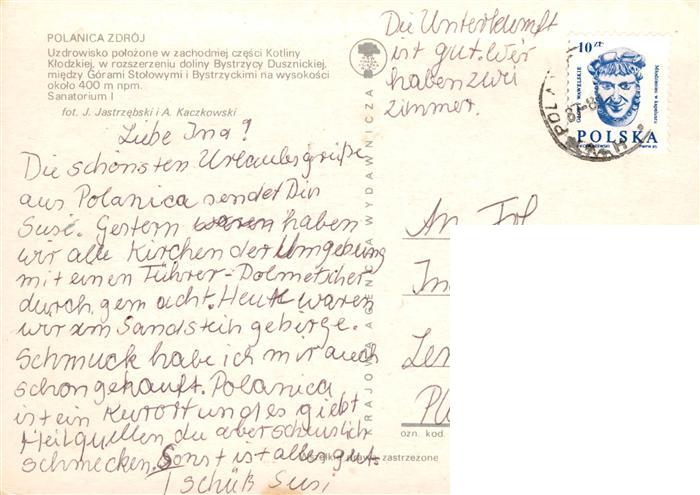 POLANICA ZDRÓJ
Uzdrowisko położone w zachodniej części Kotliny
Kłodzkiej, w rozszerzeniu doliny Bystrzycy Dusznickiej,
między Górami Stołowymi i Bystrzyckimi na wysokości
około 400 m npm.
Sanatorium I
fot. J. Jastrzębski i A. Kaczkowski
Liebe Ina!
Die schönsten Urlaubsgrüße
aus Polanica sendet Dir
Susi. Gestern waren haben
wir alle Kirchen der Umgebung
mit einen Führer-Dolmetscher
durch gemacht. Heute waren
wir im Sandsteingebirge.
Schmuck habe ich mir auch
schon gekauft. Polanica
ist ein Kurort und es giebt
Heilquellen die aber scheuslich
schmecken. Sonst ist alles gut.
Tschüß Susi
Die Unterkunft
ist gut. Wir
haben zwei
Zimmer.
KRAJOWA AGENCJA WYDAWNICZA
10 ZŁ
GŁOWY WAWELSKIE
POLSKA
An Frl
In
Len
ozn. kod.
Wszelkie prawa zastrzeżone